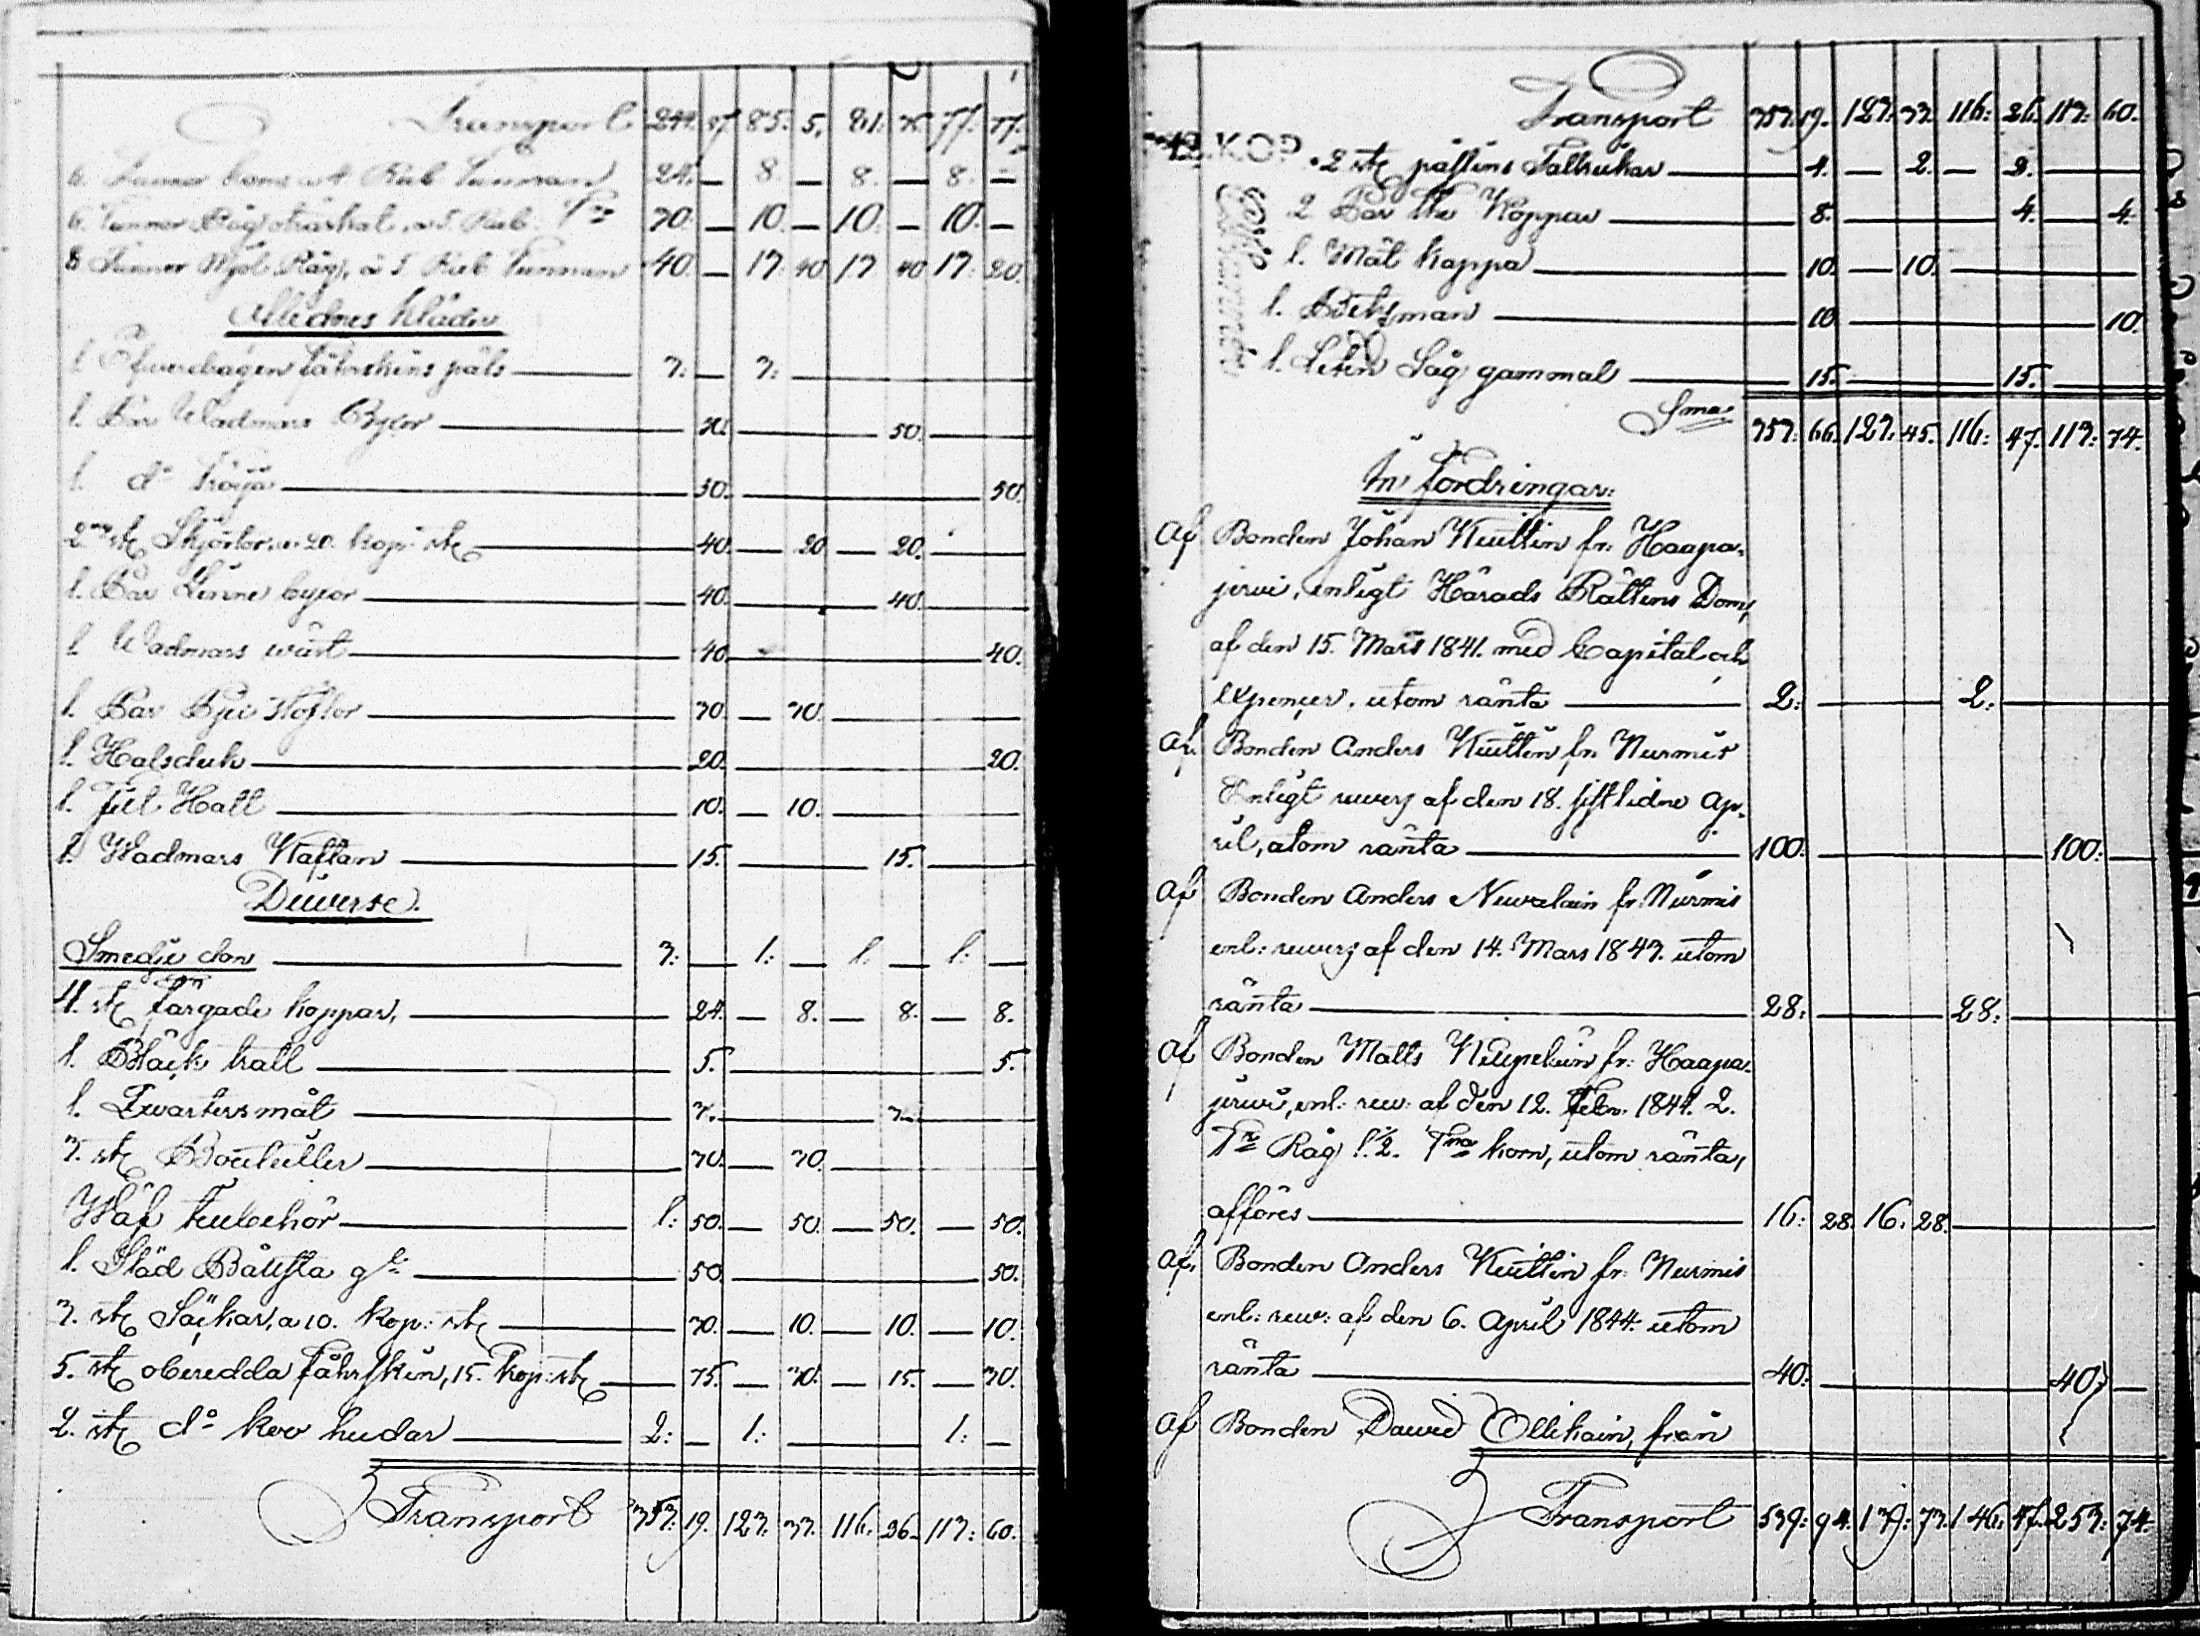 Transport 244. 37 85. 5. 81. 77. 77.
6. Tunnor korn a 4 Rub. Tunnan 24. — 8. — 8. — 8. —
6. Tunnor Råg otröskat, a 5. Rub. Tnn 30. — 10. — 10. — 10. —
8 Tunnor Mjöl Råg, a 5 Rub. Tunnan 40. — 13. 40 13 40 13. 20.
Aflednes kläder
1. Öfverdragen fårskins päls 3: — 3:
1. Par Wadmars Byxor 50. 50.
1. do tröija 50. 50.
2 stc Skjortor, a 20. kop: stc 40. — 20 — 20.
1. Par Linne byxor 40. 40.
1. Wadmars wäst 40. 40.
1. Par Bjei stöflor 30. — 30.
1. Halsduk 20. 20.
1. Hatt 10. — 10.
1. Wadmars Kaftan 15. 15.
Diverse.
Smedje don 3: — 1: — 1: — 1: —
4. stc fargade koppar, 24. — 8. — 8. — 8.
1. Bläck trall 5. 5.
1. Qwarters mål 3. 3.
3. stc Bouteiller 30. — 30.
Wäf tillbehör 1: 50. — 50. — 50. — 50.
1. Städ 50. 50.
3. stc Säckar, a 10. kop: stc 30. — 10. — 10. — 10.
5. stc oberedda fåhrskin, 15. kop: stc 75. — 30. — 15. — 30.
2. stc do koo hudar 2: — 1: 1: —
Transport 353: 19. 123. 33. 116. 26. 113: 60.
Transport 353: 19. 123: 33. 116: 26. 113: 60.
KOP
2 stc Taltrikar 4. — 2. — 2.
2 Par the Koppar 8. 4. 4.
1. Mål kappa 10. — 10.
1. Betsman 10. 10.
1. Liten Såg gammal 15. 15.
Sma: 353: 66. 123: 45. 116: 47. 113: 74.
In fordringar:
Af Bonden Johan Kuittin fr: Haapa-
jerwi, enligt Härads Rättens Dom,
af den 15. Mars 1841. med Capital och
expencer, utom ränta 2: 2:
af Bonden Anders Kuittin fr: Nurmis
Enligt revers af den 18. sistlidne Ap-
ril, utom ränta 100: 100:
af Bonden Anders Newalain fr: Nurmis
enl: revers af den 14. Mars 1843. utom
ränta 28: 28:
af Bonden Matts fr: Haapa-
jerwi, enl: rew: af den 12. Febr. 1841. 2.
Tnr Råg 1½. Tnna korn, utom ränta,
afföres 16: 28. 16. 28.
af Bonden Anders Kuittin fr: Nurmis
enl: rew: af den 6. April 1844. utom
ränta 40: 40:
af Bonden Dawid Ollikain, från
Transport 539: 94. 139: 73. 146: 47. 253: 74.